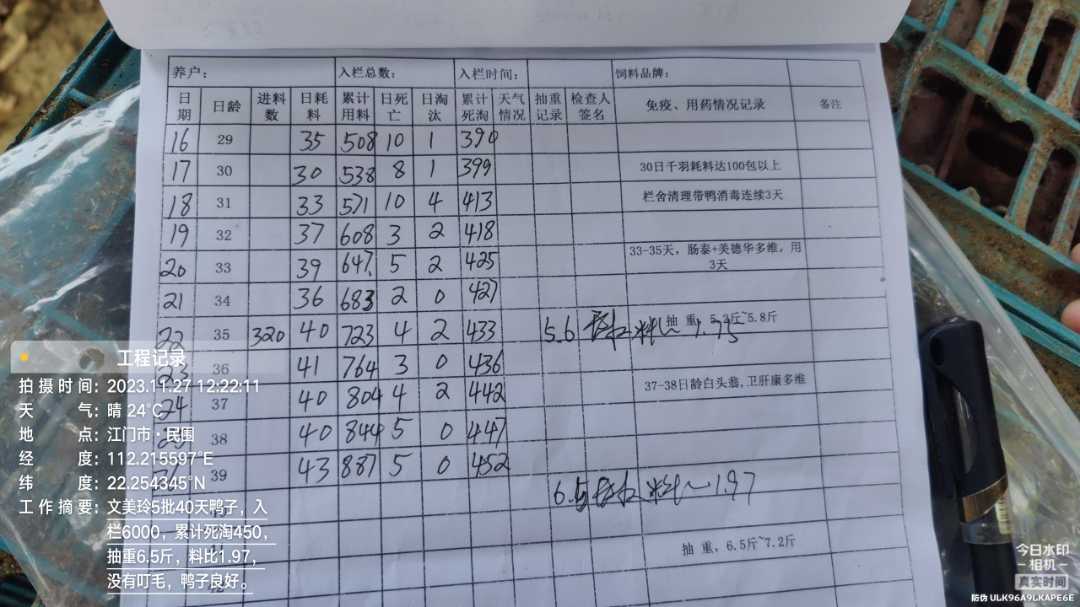 养户： 入栏总数： 入栏时间： 饲料品牌：
日期 日龄 进料数 日耗料 累计用料 日死亡 日淘汰 累计死淘 天气情况 抽重记录 检查人签名 免疫、用药情况记录 备注
16 29 35 508 10 1 390
17 30 30 538 8 1 399 30日千羽耗料达100包以上
18 31 33 571 10 4 413 栏舍清理带鸭消毒连续3天
19 32 37 608 3 2 418
20 33 39 647 5 2 425 33-35天，肠泰+美德华多维，用3天
21 34 36 683 2 0 427
22 35 320 40 723 4 2 433 5.6 料~1.75 抽重，5.3斤~5.8斤
23 36 41 764 3 0 436
24 37 40 804 4 2 442 37-38日龄白头翁，卫肝康多维
38 40 844 5 0 447
39 43 887 5 0 452
6.5 料~1.97
抽重，6.5斤~7.2斤
42
工程记录
拍摄时间：2023.11.27 12:22:11
天气：晴 24℃
地点：江门市·民围
经度：112.215597°E
纬度：22.254345°N
工作摘要：文美玲5批40天鸭子，入
栏6000，累计死淘450，
抽重6.5斤，料比1.97，
没有叮毛，鸭子良好。
今日水印
-相机-
真实时间
防伪 ULK96A9LKAPE6E